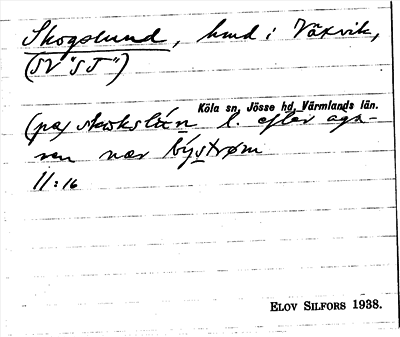 Skogslund, hmd i Växvik,
(SV "ST")
Köla sn, Jösse hd, Värmlands län.
(på) l. efter äga-
ren var Nyström
11:16
ELOV SILFORS 1938.